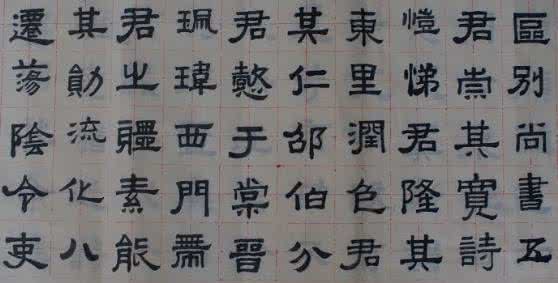 區別尚書五
君崇其寬詩
愷悌君隆其
東里潤色君
其仁邵伯分
君懿于棠晉
珮瑋西門帶
君之疆素能
其勛流化八
遷蕩陰令吏